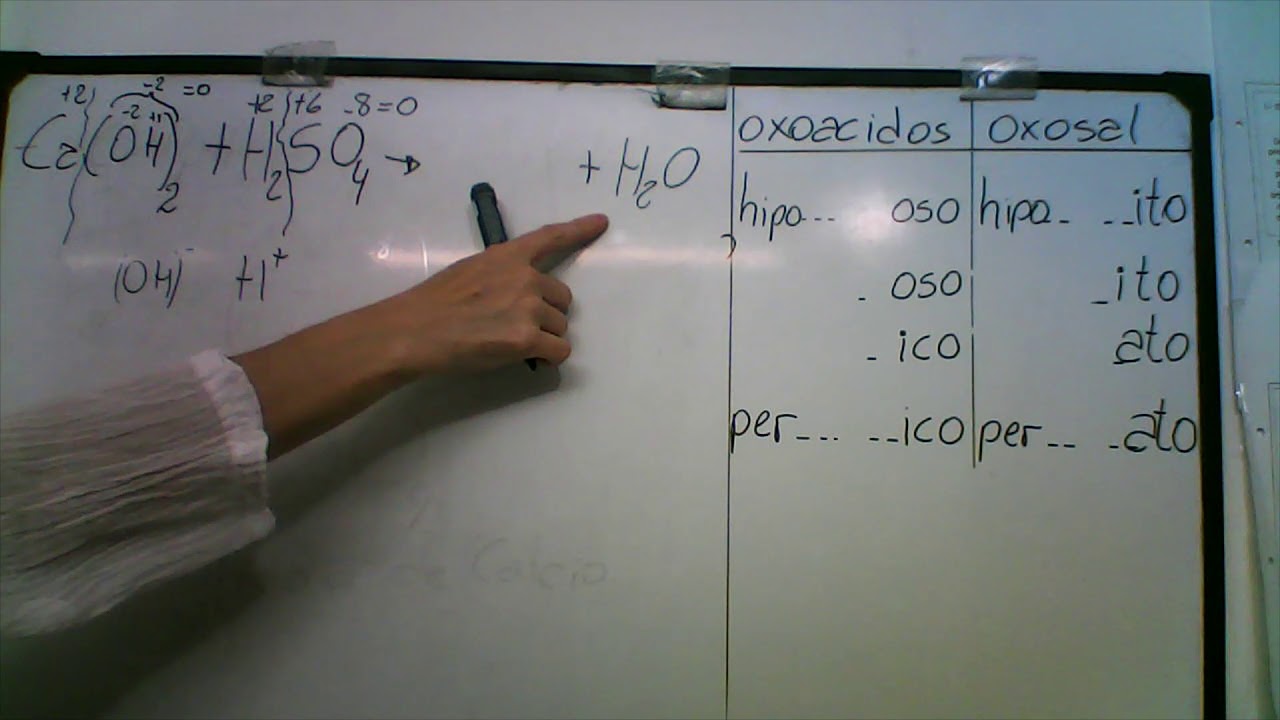 +2 -2 =0 +2 +6 -8=0
-2 +1
Ca(OH)2 + H2SO4 → + H2O
(OH)- H+
oxoacidos oxosal
hipo... oso hipo. ..ito
. oso .ito
. ico ato
per... ..ico per.. .ato
de Calcio